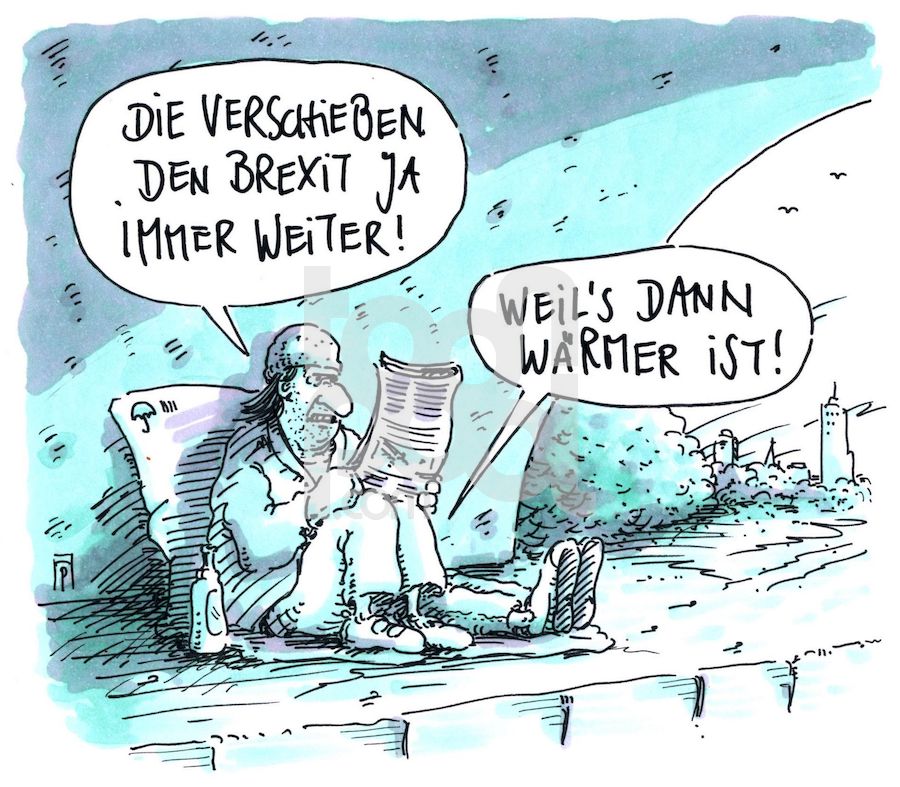 DIE VERSCHIEBEN
DEN BREXIT JA
IMMER WEITER!
WEIL'S DANN
WÄRMER IST!